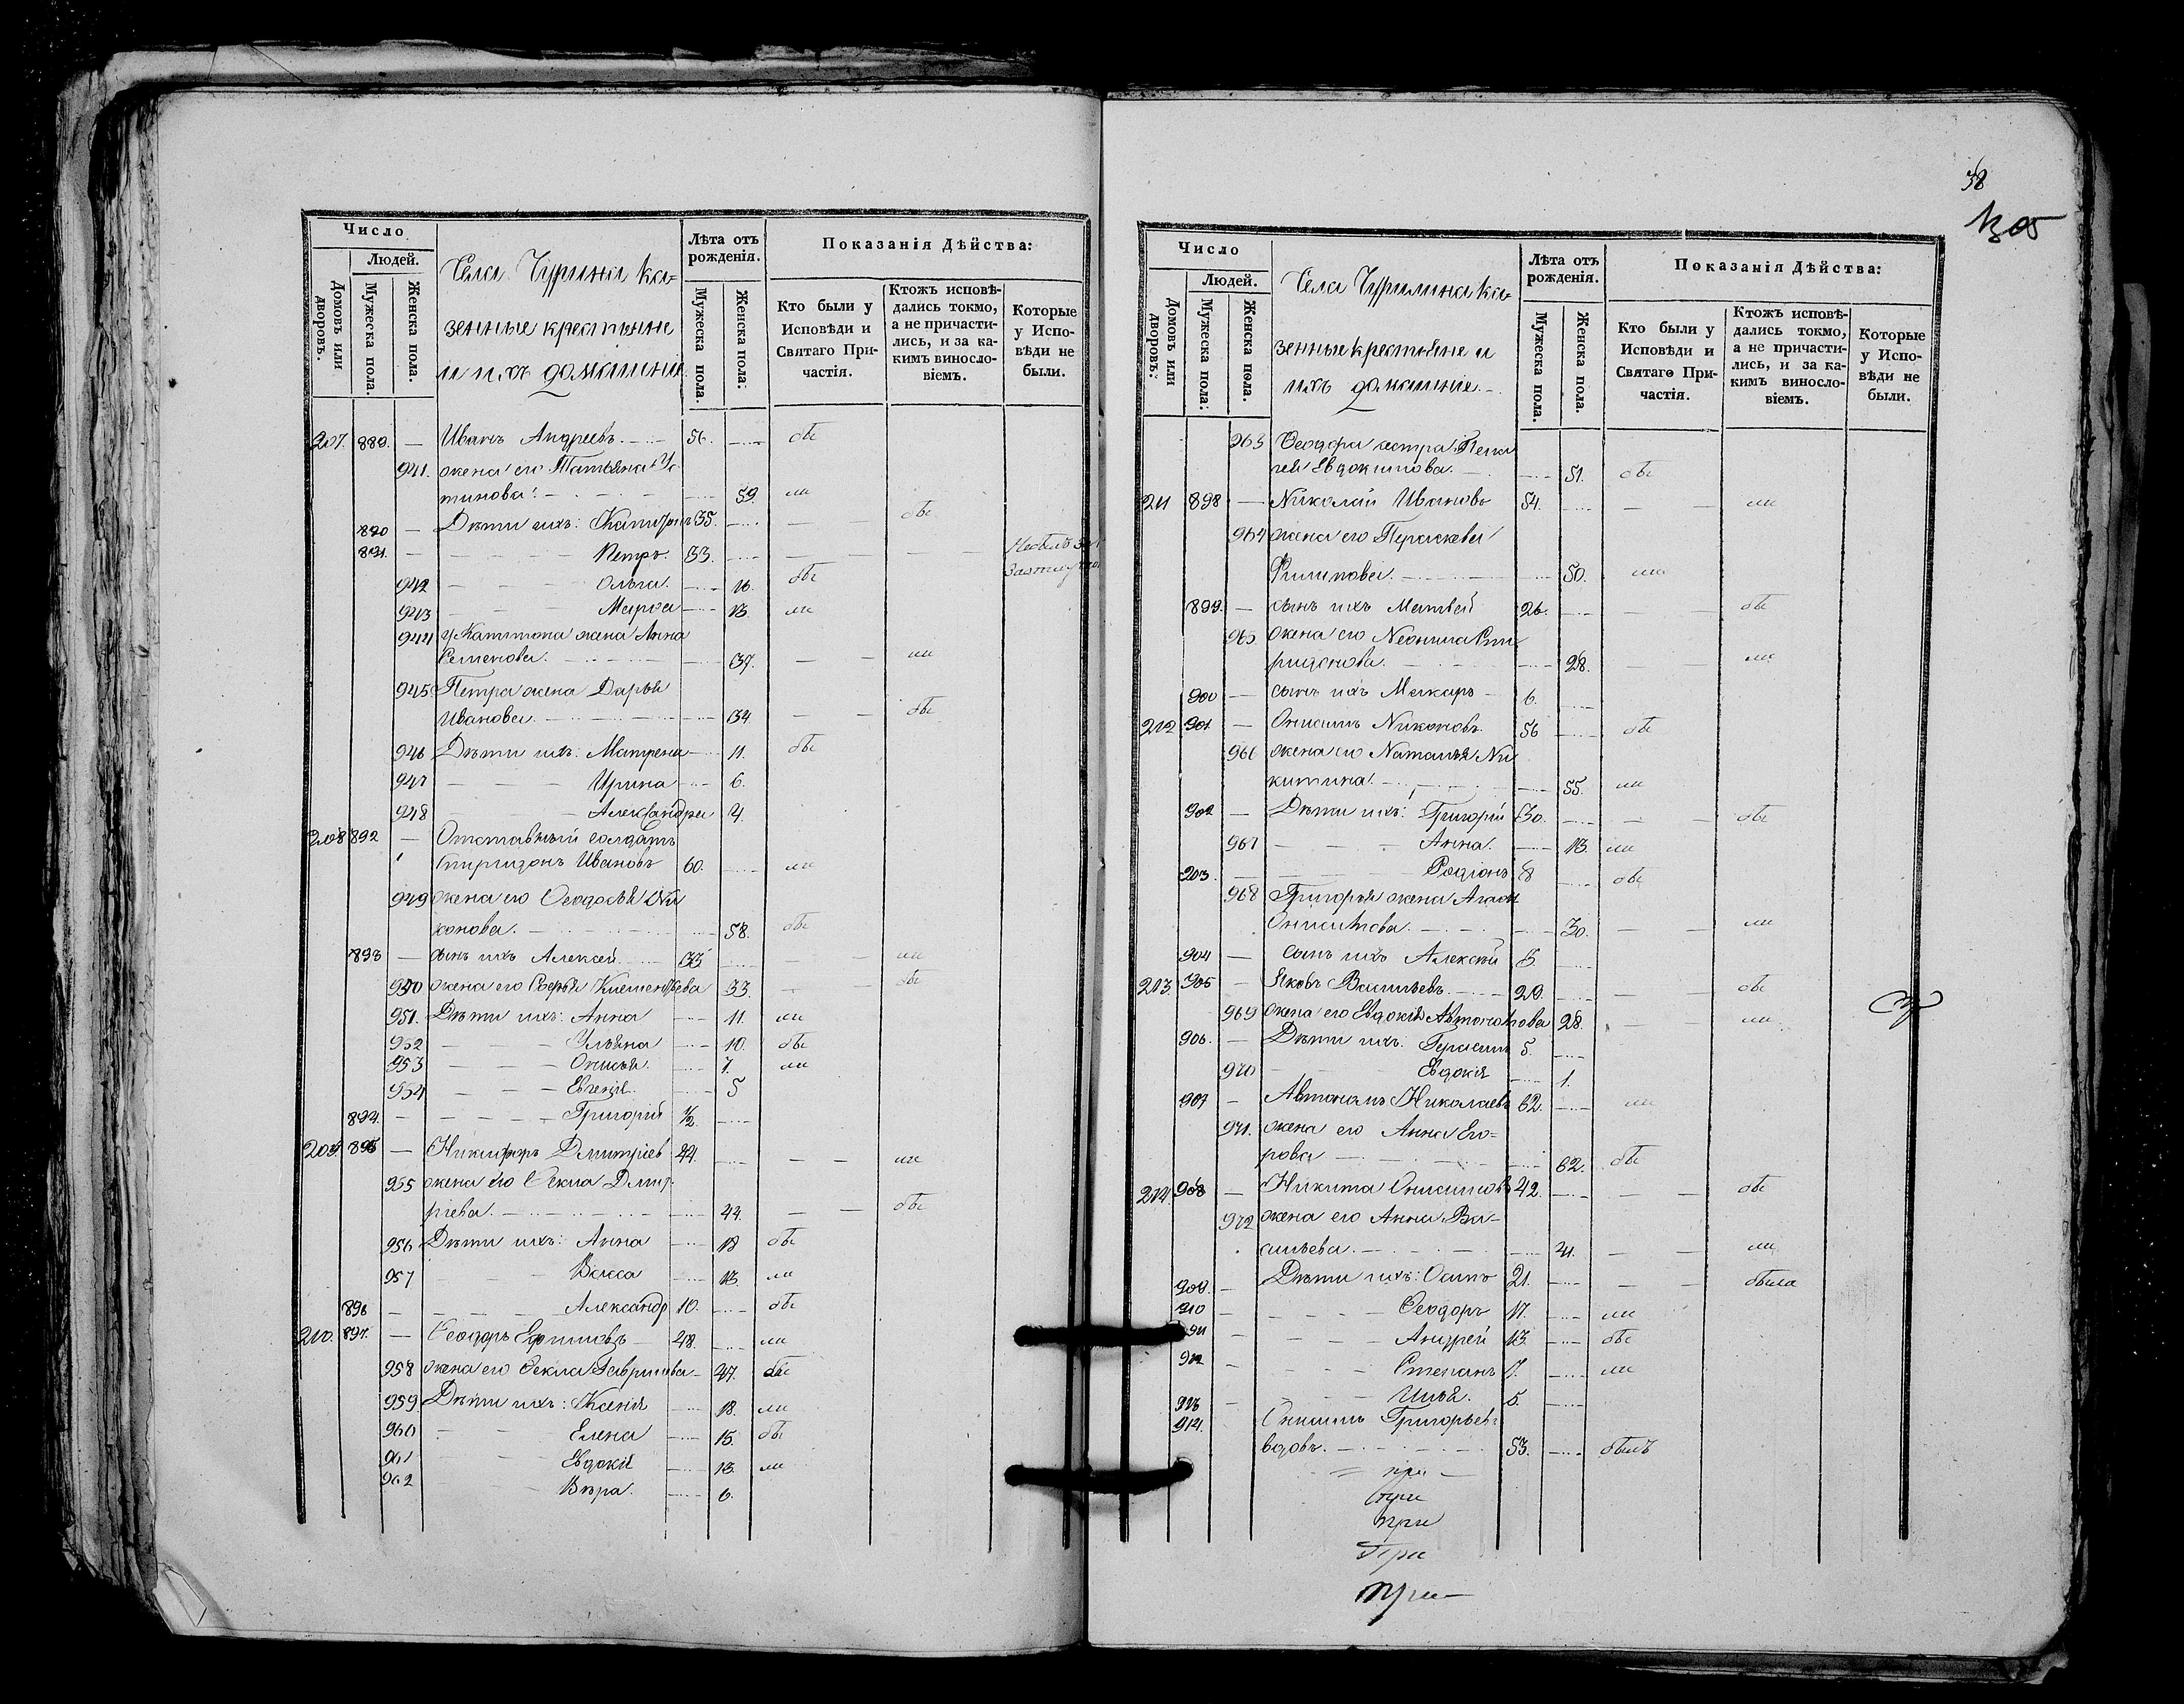 Число
Людей.
Домовъ или дворовъ.
Мужеска пола.
Женска пола.
Села Чурилина ка-
зенные крестьяне
и ихъ домашніе
Лѣта отъ рожденія.
Мужеска пола.
Женска пола.
Показанія Дѣйства:
Кто были у Исповѣди и Святаго При-частія.
Ктожъ исповѣ-дались токмо, а не причасти-лись, и за ка-кимъ винословіемъ.
Которые у Испо-вѣди не были.
207. 889. — Иванъ Андреевъ. 56. бы
941. жена его Татьяна
тинова. 59. ли
890 — Дѣти ихъ: Капитонъ 35. — — бы
891. — Петръ. 33. — — —
942 Ольга. 16. бы
943 Марѳа 13. ли
944 у Капитона жена Анна
Семенова. 37. — — ли
945 Петра жена Дарья
Иванова. 34 — — бы
946 Дѣти ихъ: Матрена 11. бы
947 Ирина 6.
948 Александра 4.
208 892 — Отставный солдатъ
Спиридонъ Ивановъ 60. ли
949 жена его Ѳеодосья Ни
конова. 58. бы
893 — сынъ ихъ Алексей. 33 — — ли
950 жена его Софья Клементьева 33. — — бы
951. Дѣти ихъ: Анна 11. ли
952 Ульяна 10. бы
953 Онисья. 7. ли
954 Евгенія. 5
894. — Григорій 1/2.
209 895 — Никифоръ Дмитріевъ 44. — — ли
955 жена его Ѳекла Дмит-
ріева. 44. — — бы
956 Дѣти ихъ: Анна 18 бы
957 Васса 13. ли
896 — Александръ 10. бы
210. 897. — Ѳеодоръ Ефимовъ 48. ли
958 жена его Ѳекла Гаврилова 47. бы
959. Дѣти ихъ: Ксенія 18. ли
960 Елена 15. бы
961 Евдокія 13. ли
962 Вѣра. 6.
38
Число
Людей.
Домовъ или дворовъ.
Мужеска пола.
Женска пола.
Села Чурилина ка-
зенные крестьяне и
ихъ домашніе.
Лѣта отъ рожденія.
Мужеска пола.
Женска пола.
Показанія Дѣйства:
Кто были у Исповѣди и Святаго При-частія.
Ктожъ исповѣ-дались токмо, а не причасти-лись, и за ка-кимъ винословіемъ.
Которые у Испо-вѣди не были.
963 Ѳеодора сестра Пела
гея Евдокимова. 51. бы
211 898 — Николай Ивановъ 54. — — ли
964 жена его Параскева
Филипова. 50. ли
899. — сынъ ихъ Матвей 26. — — бы
965 жена его Неонила Спи
ридонова. 28. — — ли
900 — сынъ ихъ Макаръ 6.
212 901 — Онисимъ Никоновъ. 56 бы
966 жена его Наталья Ни
китина. 55. ли
902 — Дѣти ихъ: Григорій 30. — — бы
967 Анна. 13. ли
903. Родіонъ 8 бы
968 Григорья жена
Онисимова. 30. — — ли
904 — сынъ ихъ Алексѣй 5.
213. 905 — Яковъ Васильевъ. 29. — — бы
969 жена его Евдокія Автономова 28. — — ли
906. — Дѣти ихъ: Герасимъ 5.
970 Евдокія 1.
907 — Автономъ Николаевъ 62. ли
971. жена его Анна Его=
рова 62. бы
214. 908 — Никита Онисимовъ 42. — — бы
972 жена его Анна Ва-
сильева. 41. — — ли
909. — Дѣти ихъ: Осипъ 21. — — была
910 — Ѳеодоръ 17. ли
911 — Андрей 13 бы
912 — Степанъ 7. ли
913 — Илья. 5.
914. Онисимъ Григорьевъ
вдовъ. 53. былъ
при
при
при
при
при